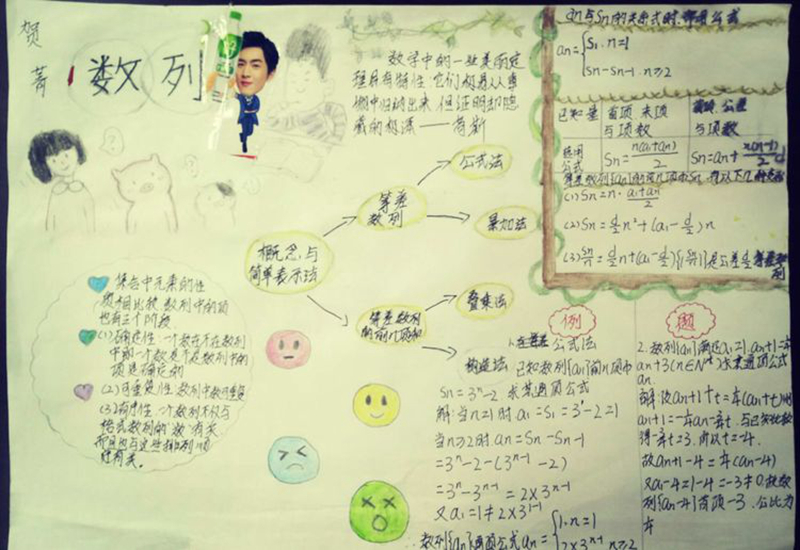 贺
菁
数列
数学中的一些美丽定
理具有特性 它们极易从事
实中归纳出来 但证明却隐
藏的极深——高斯
概念与
简单表示法
等差
数列
公式法
累加法
等差数列
的前n项和
叠乘法
构造法
集合中元素的性
质相比较 数列中的项
也有三个阶段
(1)确定性:一个数在不在数列
中,即一个数是不是数列中的
项是确定的
(2)可重复性:数列中数可重复
(3)有序性:一个数列不仅与
构成数列的"数"有关
而且也与这些排列顺
序有关。
an与Sn的关系式时,常用公式
an={S1, n=1
Sn-Sn-1, n≥2
已知量 首项 末项 与项数
首项、公差 与项数
选用公式 Sn=n(a1+an)/2
等差数列{an}的前几项和Sn
(1)Sn=n·a1+an/2
(2)Sn=d/2n²+(a1-d/2)n
例
公式法
已知数列{an}前n项和
Sn=3ⁿ-2 求其通项公式
解:当n=1时 a1=S1=3¹-2=1
当n≥2时 an=Sn-Sn-1
=3ⁿ-2-(3ⁿ⁻¹-2)
=3ⁿ-3ⁿ⁻¹=2×3ⁿ⁻¹
又a1=1≠2×3¹⁻¹
∴数列{an}通项公式an={1, n=1
2×3ⁿ⁻¹ n≥2
题
2.数列{an}满足a1=1, an+1=¼
an+3(n∈N*)求其通项公式
an.
解:设an+1+t=¼(an+t)则
an+1=¼an-¾t,与已知比较
得-¾t=3,所以t=-4.
故an+1-4=¼(an-4)
又a1-4=1-4=-3≠0,故数
列{an-4}首项-3,公比为
¼